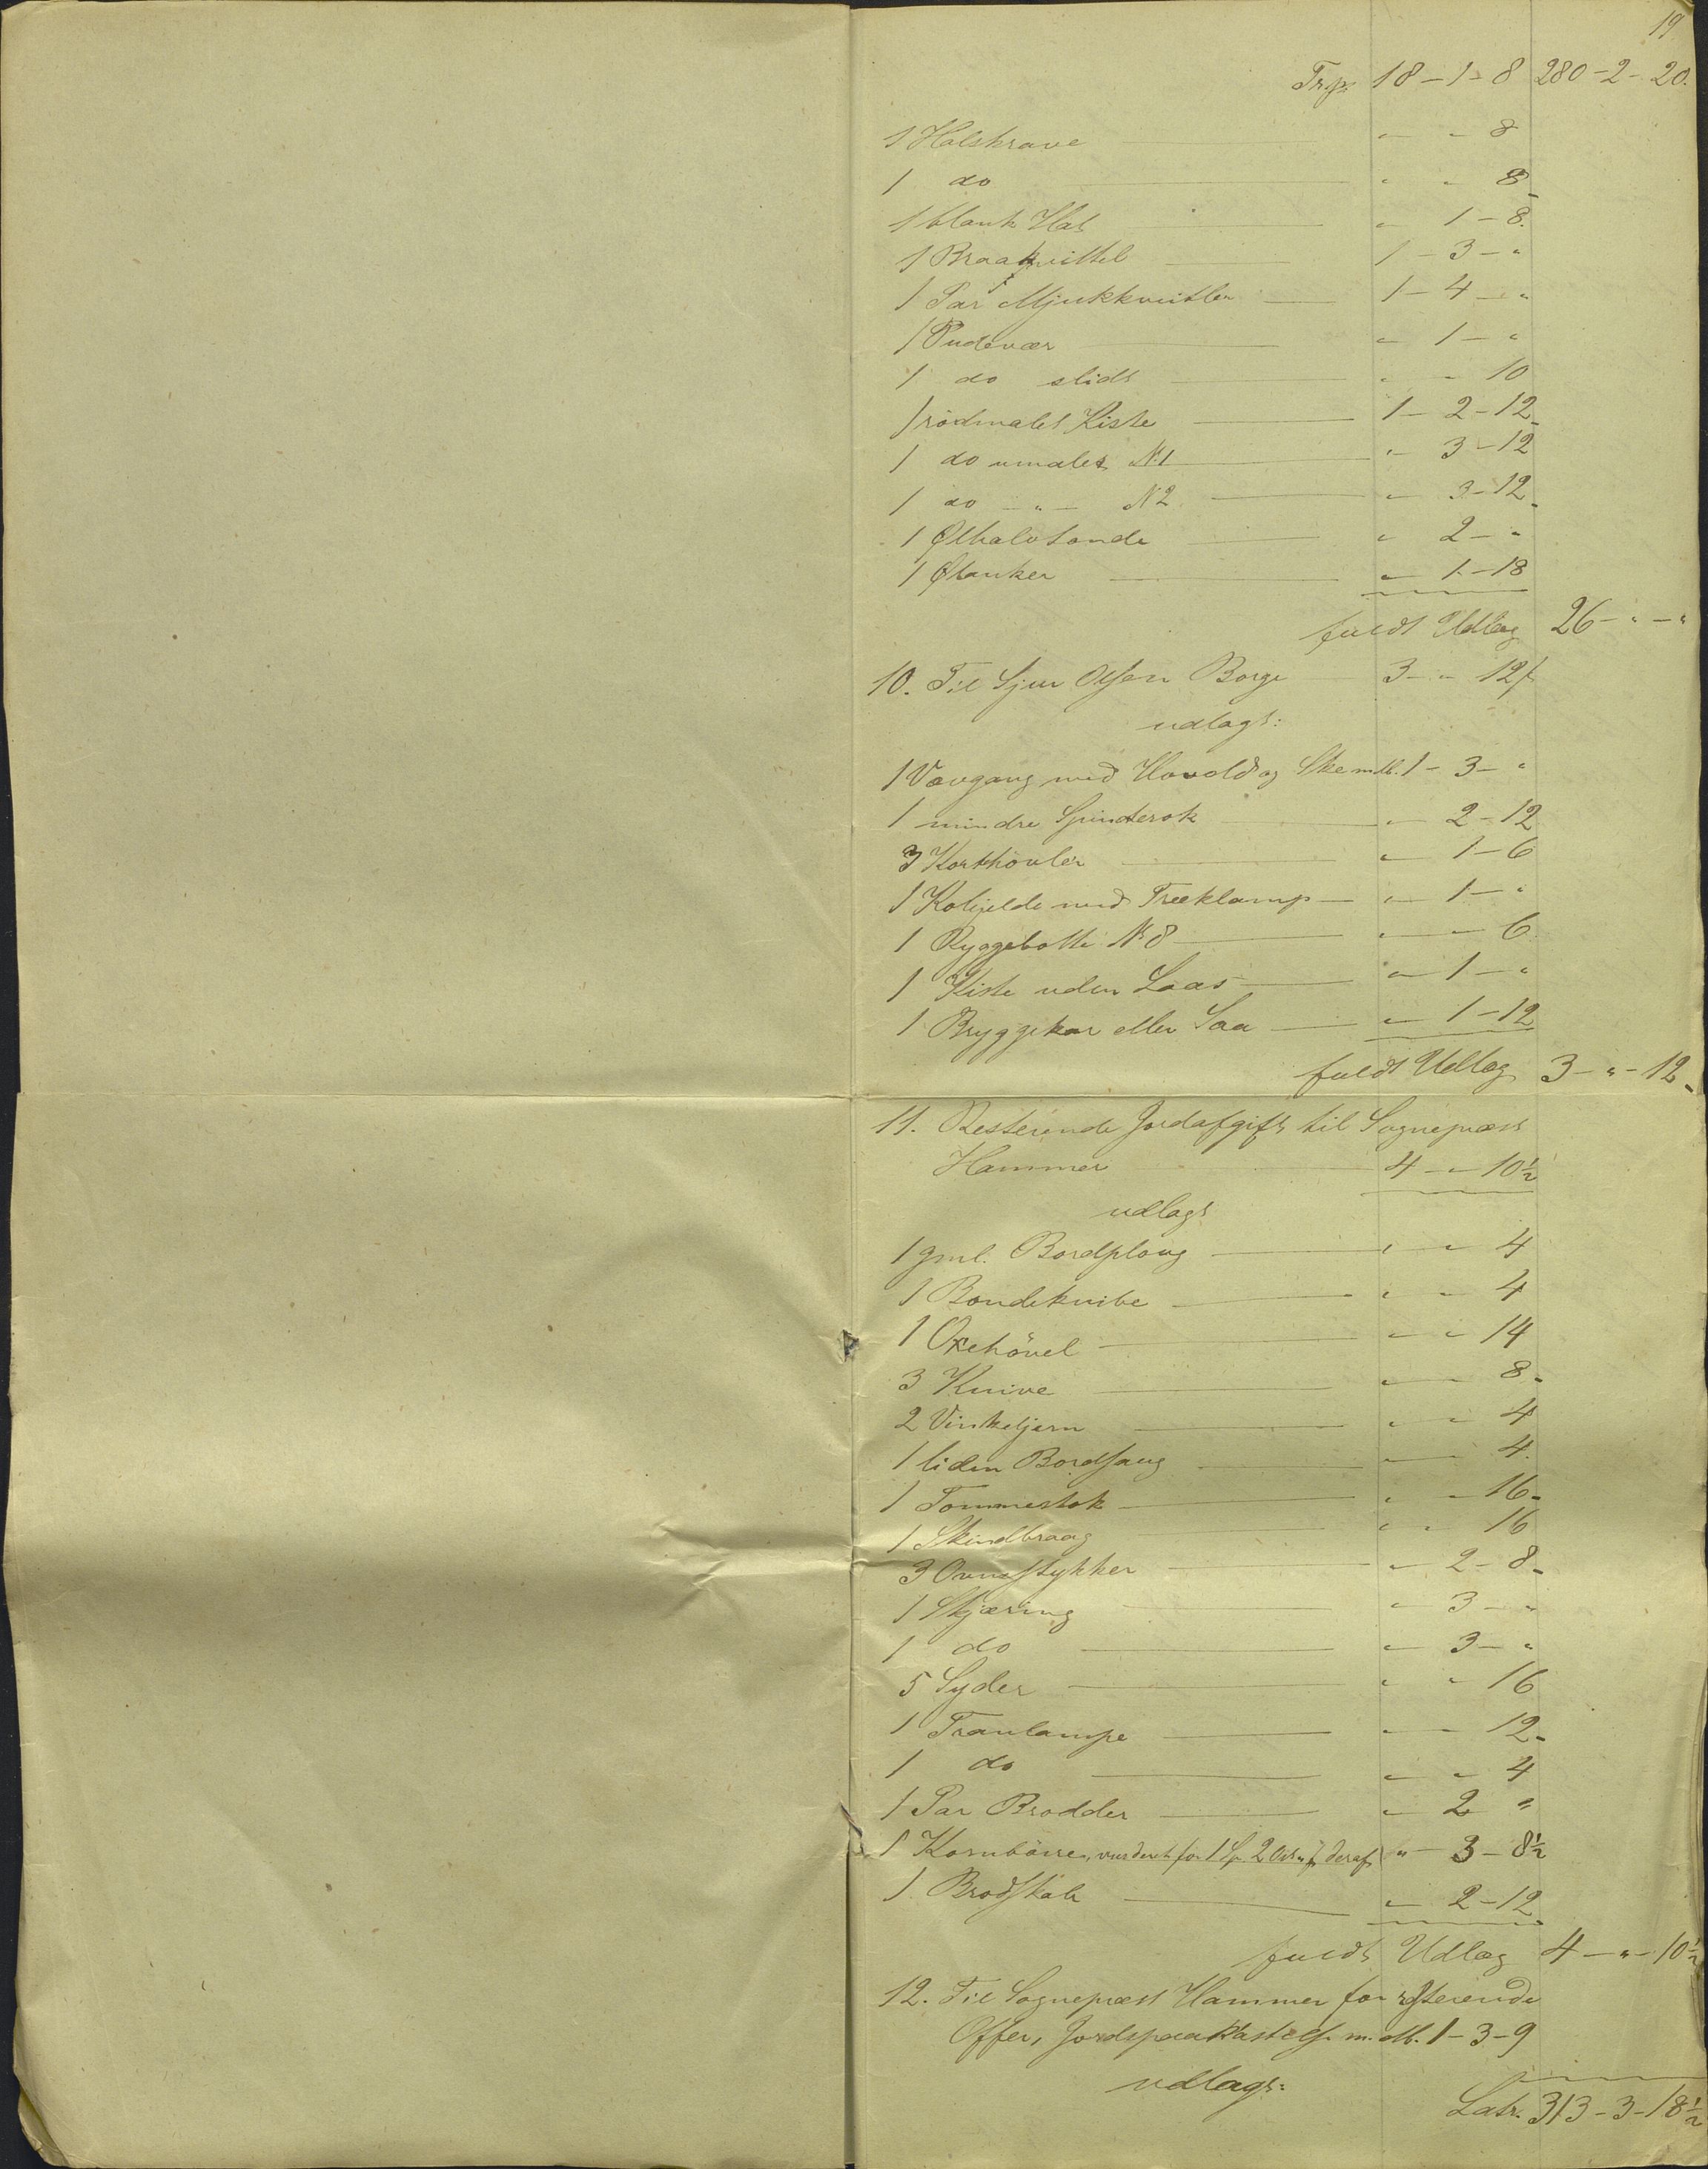 19
Trsp. 18 – 1 – 8 280 – 2 – 20.
1 Halskrave " – " – 8
1 do " " 8
1 blank Hat " 1 – 8.
1 Braakvittel 1 – 3 – "
1 Par Mjukkvitler 1 – 4 – "
1 Pudevær " 1 – "
1 do slidt " " 10
1 rødmalet Kiste 1 – 2 – 12
1 do umalet N. 1 " 3 – 12
1 do – " – N 2 " 3 – 12
1 Ølhalvtønde " 2 – "
1 Ølanker " 1 – 18
fuldt Udlæg 26 – " – "
10. Til Sjur Olsen Borge 3 – " 12 f
udlagt:
1 Vævgang med Hovold og Ske m. ll. 1 – 3 – "
1 mindre Spinderok " 2 – 12
3 Korthövler " 1 – 6
1 Kobjelde med Træklamp " 1 – "
1 Ryggebøtte N. 8 " – " 6
1 Kiste uden Laas " 1 – "
1 Bryggekar eller Saa " 1 – 12
fuldt Udlæg 3 – " – 12
11. Resterende Jordafgift til Sognepræst
Hammer 4 – " 10½
udlagt
1 gml. Bordploug " " 4
1 Bondeknibe " " 4
1 Oxehövel " " 14
3 Knive " " 8
2 Vinkeljern " " 4
1 liden Bordsaug " 4
1 Tommestok " " 16
1 Skindbraag " " 16
3 Ovnsstykker " 2 – 8
1 Skjæring " 3 – "
1 do " 3 – "
5 Syder " " 16
1 Tranlampe " " 12
1 do " " 4
1 Par Brodder " 2 "
1 Kornbörre, vurderet for 1 Sp. 2 Ort " ß deraf " – 3 – 8½
1 Brødskab " 2 – 12
fuldt Udlæg 4 – " – 10½
12. Til Sognepræst Hammer for resterende
Offer, Jordspaakastelse m. ll. 1 – 3 – 9
udlagt:
Latr. 313 – 3 – 18½